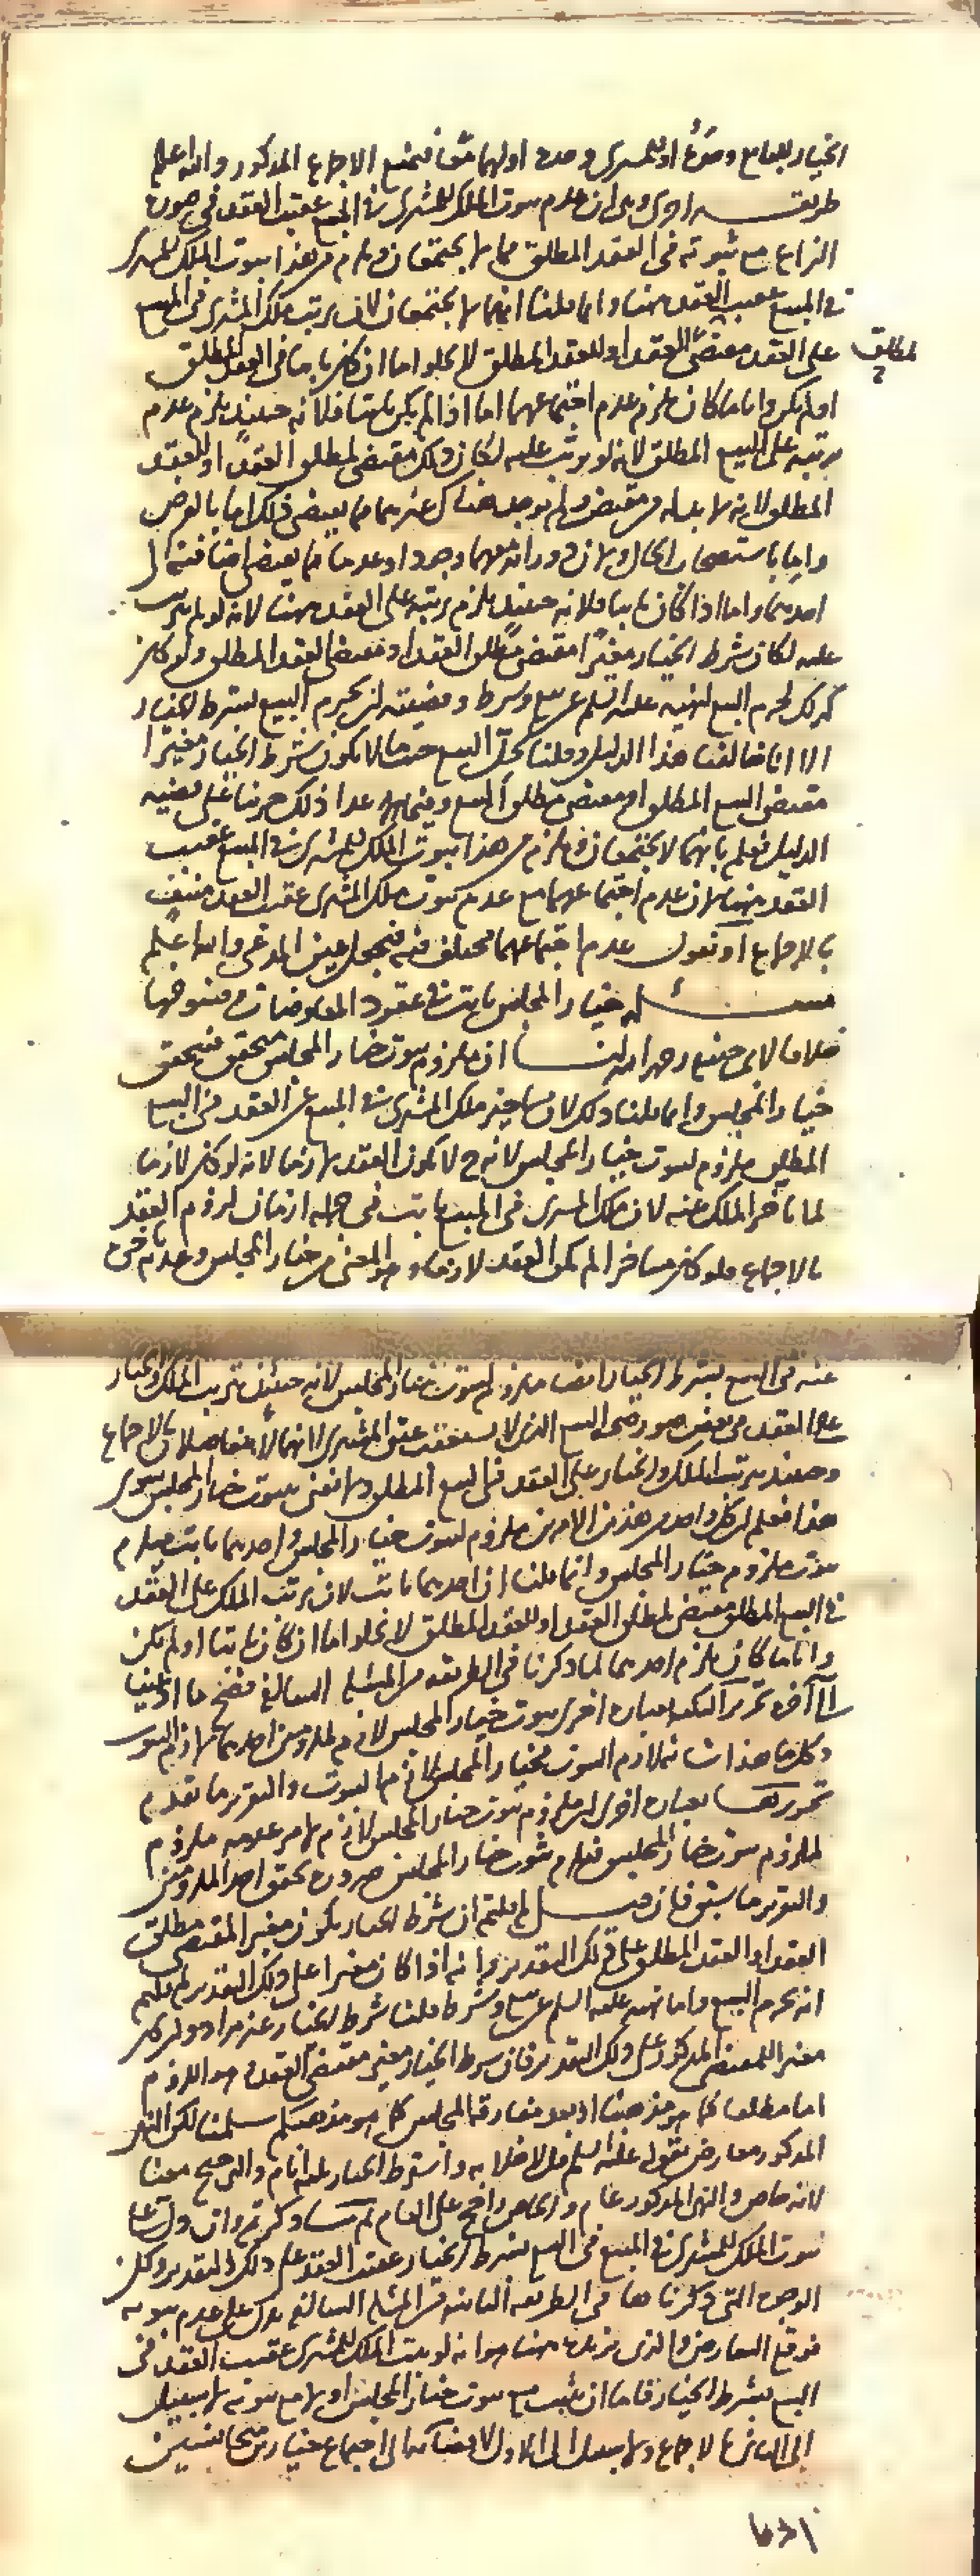 الخيار للبايع وحده او للمشترى وحده او لهما معا فيمتنع الاجماع المذكور والله اعلم
طريقـــه اخرى وهى ان عدم ثبوت الملك للمشترى فى المبيع عقيب العقد فى صورة
النزاع مع ثبوته فى العقد المطلق مما لا يجتمعان ويلزم من هذا ثبوت الملك للمشترى
فى المبيع عقيب العقد ههنا وانما قلنا انهما لا يجتمعان لان ترتب ملك المشترى فى المبيع
على العقد مقتضى العقد او للعقد المطلق لا يخلو اما ان كان ثابتا فى العقد المطلق
لمطلق
او لم يكن واياما كان يلزم عدم اجتماعهما اما اذا لم يكن ثابتا فلانه حينئذ يلزم عدم
ترتبه على البيع المطلق لانه لو ترتب عليه لكان ذلك مقتضى لمطلق العقد او للعقد
المطلق لانه لا بد له من مقتض ولم يوجد هناك غيرهما مما يقتضى ذلك اما بالفرض
واما باستصحاب الحال ولان دورانه معهما وجودا وعدما مما يقتضى اضافته الى
احدهما واما اذا كان ثابتا فلانه حينئذ يلزم ترتبه على العقد ههنا لانه لو لم يترتب
عليه لكان شرط الخيار مغيرا مقتضى مطلق العقد او مقتضى العقد المطلق ولو كان
كذلك لحرم البيع لنهيه عليه السلم عن بيع وشرط وقضيته ان يحرم البيع بشرط الخيار
الا انا خالفنا هذا الدليل وقلنا بحل البيع حيثما لا يكون شرط الخيار مغيرا
مقتضى البيع المطلق او مقتضى مطلق البيع وفيما عدا ذلك جرينا على قضية
الدليل فعلم بانهما لا يجتمعان ويلزم من هذا ثبوت الملك للمشترى فى المبيع عقيب
العقد ههنا لان عدم اجتماعهما مع عدم ثبوت ملك المشترى عقيب العقد منتف
بالاجماع او نقول عدم اجتماعهما مختلف فيه فيجعل عين المدعى والله اعلم
مســـئله خيار المجلس ثابت فى عقود المعاوضات
خلافا لابى حنيفه رحمه الله لنـــا ان ملزوم ثبوت خيار المجلس متحقق فيتحقق
خيار المجلس وانما قلنا ذلك لان تاخير ملك المشترى فى المبيع عن العقد فى البيع
المطلق ملزوم لثبوت خيار المجلس لانه ح لا يكون العقد لازما لانه لو كان لازما
لما تاخر الملك عنه لان ملك المشترى فى المبيع ثابت فى جملة ازمان لزوم العقد
بالاجماع فلو كان متاخرا لم يكن العقد لازما وهو المعنى من خيار المجلس وعدم تاخره
عنه فى البيع بشرط الخيار ايضا ملزوم لثبوت خيار المجلس لانه حينئذ يترتب الملك والخيار
على العقد فى بعض صور البيع الذى لا يستعقب عتق المشترى لانهما لا ينفصلان بالاجماع
وحينئذ يترتب الملك والخيار على العقد فى البيع المطلق ولا نعنى بثبوت خيار المجلس سوى
هذا فعلم ان كل واحد من هذين الامرين ملزوم لثبوت خيار المجلس واحدهما ثابت فيلزم
ثبوت ملزوم خيار المجلس وانما قلنا ان احدهما ثابت لان ترتب الملك على العقد
فى البيع المطلق مقتضى لمطلق العقد او للعقد المطلق لا يخلو اما ان كان ثابتا او لم يكن
واياما كان يلزم احدهما لما ذكرنا فى الطريقه من المسئله السالفه فصح ما ادعينا
الى آخره تحرير النكته بعبارة اخرى ثبوت خيار المجلس لازم لملزومين احدهما لازم الثبوت
وكلما هذا شانه لازم الثبوت فخيار المجلس لازم الثبوت والتقرير ما تقدم
تحريرهـــا بعبارة اخرى ان ملزوم ثبوت خيار المجلس لازم لامر عدمه ملزوم
لملزوم ثبوت خيار المجلس فيلزم ثبوت خيار المجلس ضرورة تحقق احد الملزومين
والتقرير ما سبق فان قيـــل لم قلتم ان شرط الخيار يكون مغيرا لمقتضى مطلق
العقد او العقد المطلق على ذلك التقدير وانه اذا كان مغيرا على ذلك التقدير لم قلتم
انه يحرم البيع واما نهيه عليه السلم عن بيع وشرط قلنا شرط الخيار غير مراد وان كان
مغيرا للمقتضى المذكور على ذلك التقدير فان شرط الخيار مغير مقتضى العقد وهو اللزوم
اما مطلقا كما هو مذهبنا او بعد مفارقة المجلس كما هو مذهبكم سلمنا لكن النهى
المذكور معارض بقوله عليه السلم قل لا خلابة واشترط الخيار ثلثه ايام والترجيح معنا
لانه خاص والنهى المذكور عام والخاص راجح على العام ثم ما ذكرتم وان دل على
ثبوت الملك للمشترى فى المبيع فى البيع بشرط الخيار عقيب العقد على ذلك التقدير ولكن
الوجوه التى ذكرناها فى الطريقه الثانيه من المسئله السالفه تدل على عدم ثبوته
فوقع التعارض والذى نزيده ههنا هو انه لو ثبت الملك للمشترى عقيب العقد فى
البيع بشرط الخيار فاما ان يثبت مع ثبوت خيار المجلس او لا مع ثبوته لا سبيل
الى الثانى بالاجماع ولا سبيل الى الاول لافضائه الى اجتماع خيارين متجانسين